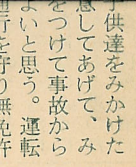 供達をみかけた
意してあげて、み
をつけて事故から
よいと思う。運転
通行を守り無免許